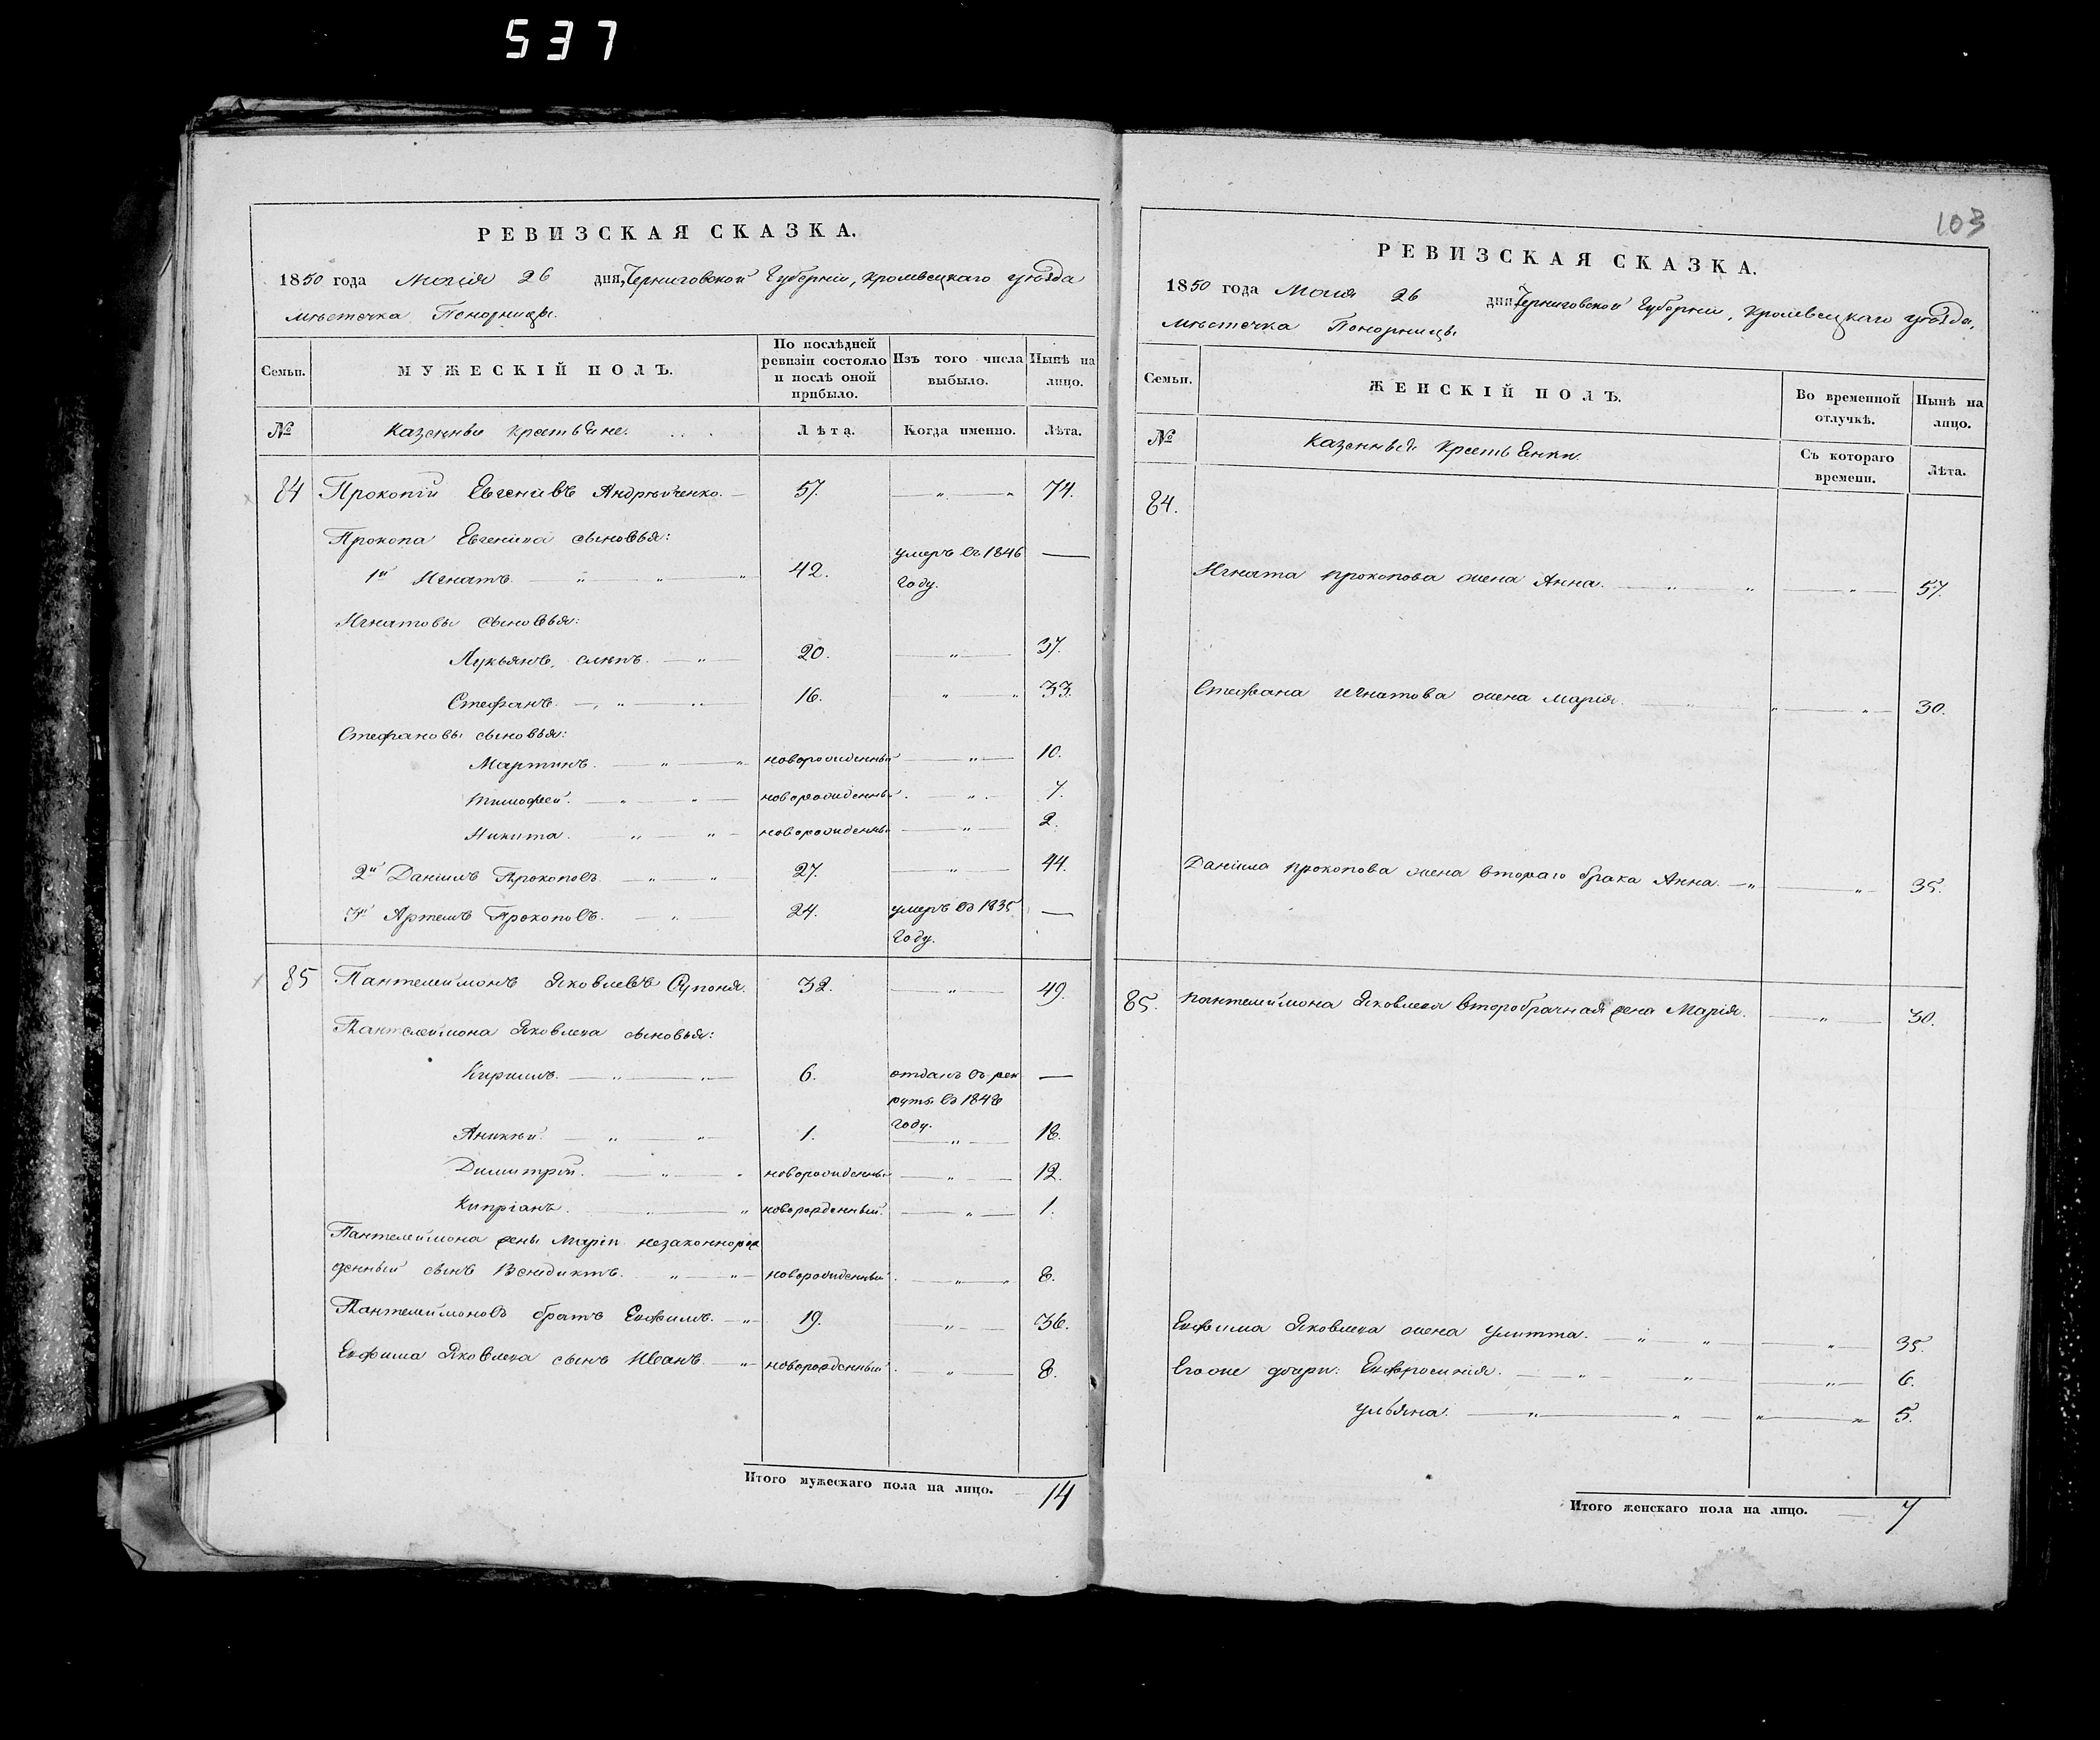 537
РЕВИЗСКАЯ СКАЗКА.
1850 года Маія 26 дня, Черниговской Губерніи, Кролевецкаго уѣзда
мѣстечка Понорницы.
Семьи. МУЖЕСКІЙ ПОЛЪ. По послѣдней ревизіи состояло и послѣ оной прибыло. Изъ того числа выбыло. Нынѣ на лицо.
№ Казенные крестьяне. Лѣта. Когда именно. Лѣта.
84 Прокопій Евгеніевъ Андрѣйченко. 57. 74.
Прокопа Евгеніева сыновья:
1й Игнатъ. 42. умеръ въ 1846 году. —
Игнатовы сыновья:
Лукьянъ, слѣпъ. 20. 37.
Стефанъ. 16. 33.
Стефановы сыновья:
Мартинъ. новорожденный 10.
Тимофей. новорожденный. 7.
Никита. новорожденный 2.
2й Даніилъ Прокоповъ. 27. 44.
3й Артемъ Прокоповъ. 24. умеръ въ 1835 году. —
85 Пантелеймонъ Яковлевъ Супоня. 32. 49.
Пантелеймона Яковлева сыновья:
Кирилъ. 6. отданъ въ рекруты въ 1848 году. —
Аникѣй. 1. 18.
Димитрій. новорожденный 12.
Кипріанъ. новорожденный. 1.
Пантелеймона жены Маріи незаконнорож
денный сынъ Венедиктъ. новорожденный. 8.
Пантелеймоновъ братъ Евфимъ. 19. 36.
Евфима Яковлева сынъ Иванъ. новорожденный. 8.
Итого мужескаго пола на лицо. 14
103
РЕВИЗСКАЯ СКАЗКА.
1850 года Маія 26 дня Черниговской Губерніи, Кролевецкаго уѣзда,
мѣстечка Понорницы
Семьи. ЖЕНСКІЙ ПОЛЪ. Во временной отлучкѣ. Нынѣ на лицо.
№ Казенныя крестьянки. Съ котораго времени. Лѣта.
84.
Игната Прокопова жена Анна. 57.
Стефана Игнатова жена Марія. 30.
Даніила Прокопова жена втораго брака Анна. 35.
85. Пантелеймона Яковлева второбрачная жена Марія. 30.
Евфима Яковлева жена Улитта. 35.
Егоже дочери: Евфросинія. 6.
Ульяна. 5.
Итого женскаго пола на лицо. 7